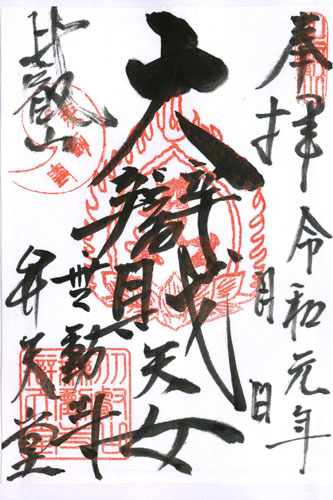 奉拝 令和元年 月 日
大辯財天女
比叡山
無動寺
弁天堂